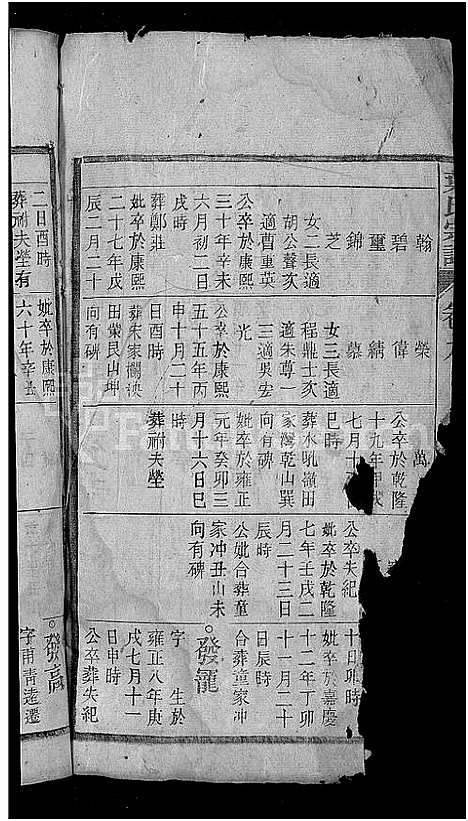 氏宗譜 卷九
翰
碧
璽
錦
芝
女二長適
胡公聲亥
適曹重英
公卒於康熙
三十年辛未
六月初二日
戌時
葬鄭莊
妣卒於康熙
二十七年戊
辰二月二十
榮
偉
綪
慕
女三長適
程鼎士亥
適朱尊一
三適吳宏
光
公卒於康熙
五十五年丙
申十月二十
日酉時
葬朱家
田業艮山坤
向有碑
萬
公卒於乾隆
十九年甲戌
七月十
巳時
葬水吼嶺田
家灣乾山巽
向有碑
妣卒於雍正
元年癸卯三
月十六日巳
時
葬祔夫塋
公卒失紀
妣卒於乾隆
七年壬戌二
月二十三日
辰時
公妣合葬童
家冲丑山未
向有碑
十日卯時
妣卒於嘉慶
十二年丁卯
十一月二十
日辰時
合葬童家冲
發龍
字 生於
雍正八年庚
戌七月十一
日申時
公卒葬失紀
二日酉時
葬祔夫塋有
妣卒於康熙
六十年辛丑
發嬴
字甫青遠遷